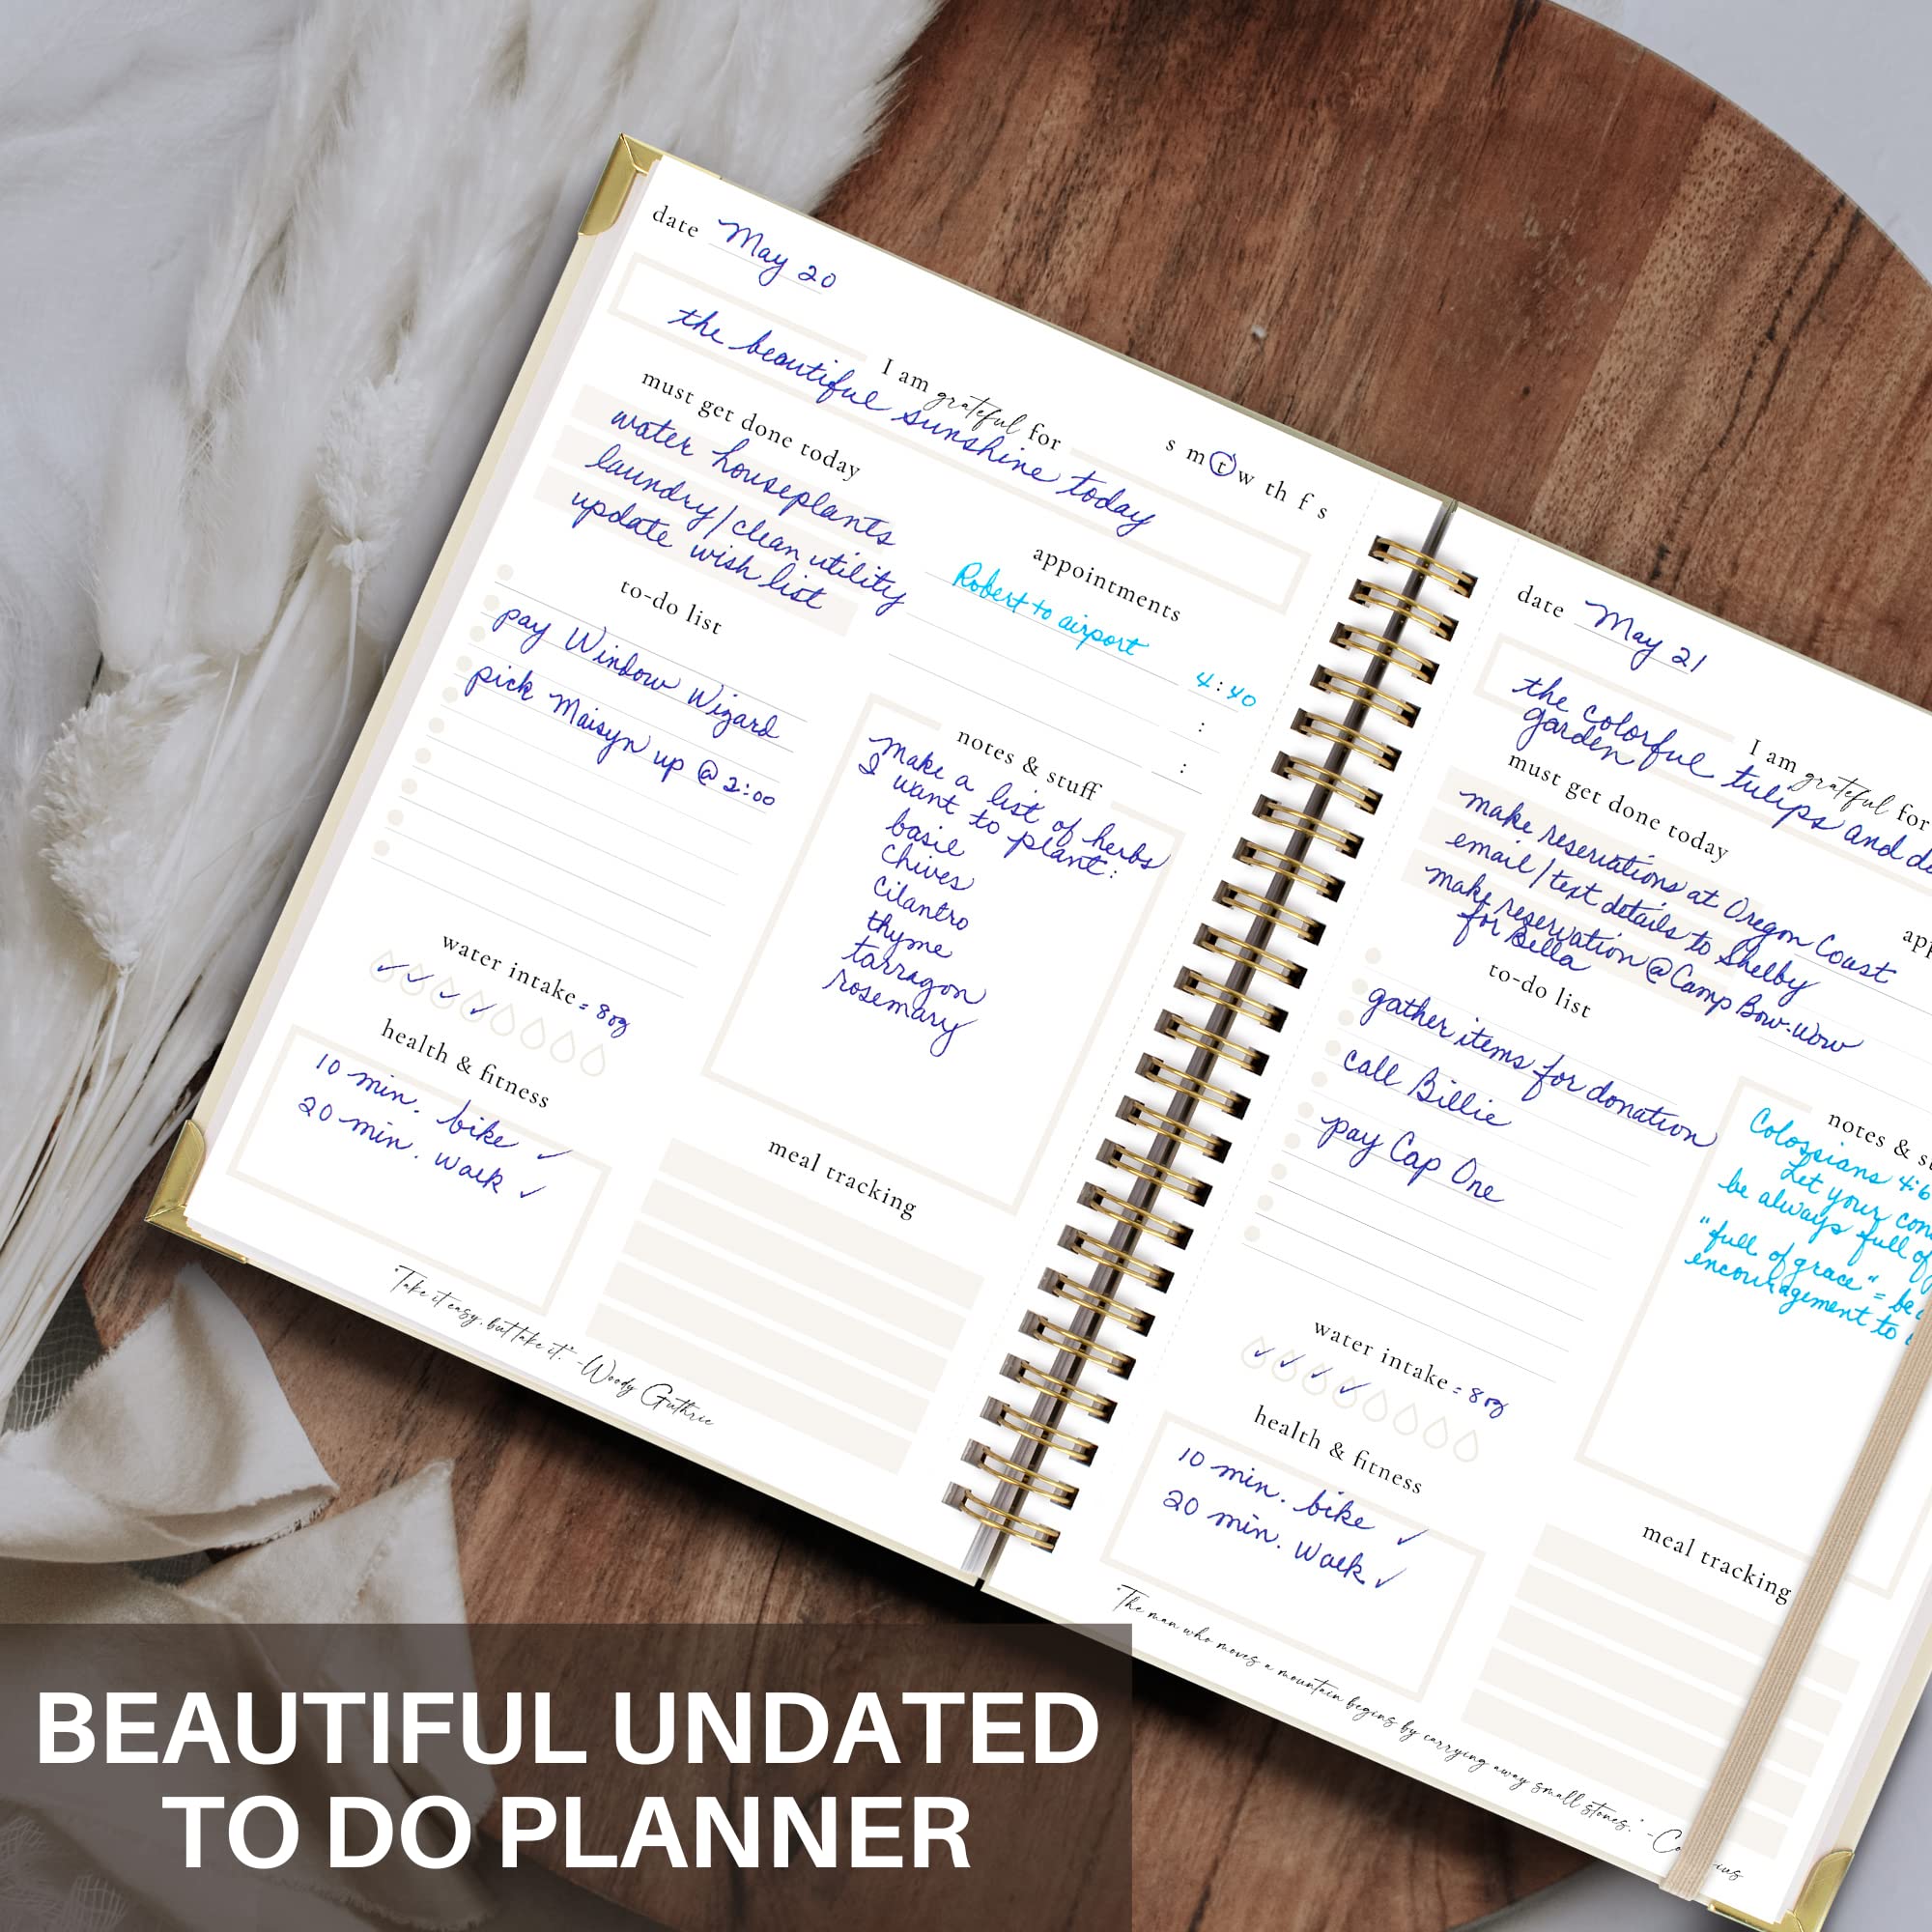 date May 20
I am grateful for
s m t w th f s
the beautiful sunshine today
must get done today
water houseplants
laundry/clean utility
update wish list
appointments
Robert to airport 4:40
:
:
to-do list
pay Window Wizard
pick Maisyn up @ 2:00
notes & stuff
Make a list of herbs
I want to plant:
basil
chives
cilantro
thyme
tarragon
rosemary
water intake = 8oz
health & fitness
10 min. bike ✓
20 min. walk ✓
meal tracking
"Take it easy, but take it." -Woody Guthrie
date May 21
I am grateful for
the colorful tulips and
garden
must get done today
make reservations at Oregon Coast
email/text details to Shelby
make reservation @ Camp Bow-Wow
for Bella
to-do list
gather items for donation
call Billie
pay Cap One
notes &
Colossians 4:6
Let your
be always full of
"full of grace" = be
encouragement to
water intake = 8oz
health & fitness
10 min. bike ✓
20 min. walk ✓
meal tracking
"The man who moves a mountain begins by carrying away small stones." -
BEAUTIFUL UNDATED
TO DO PLANNER